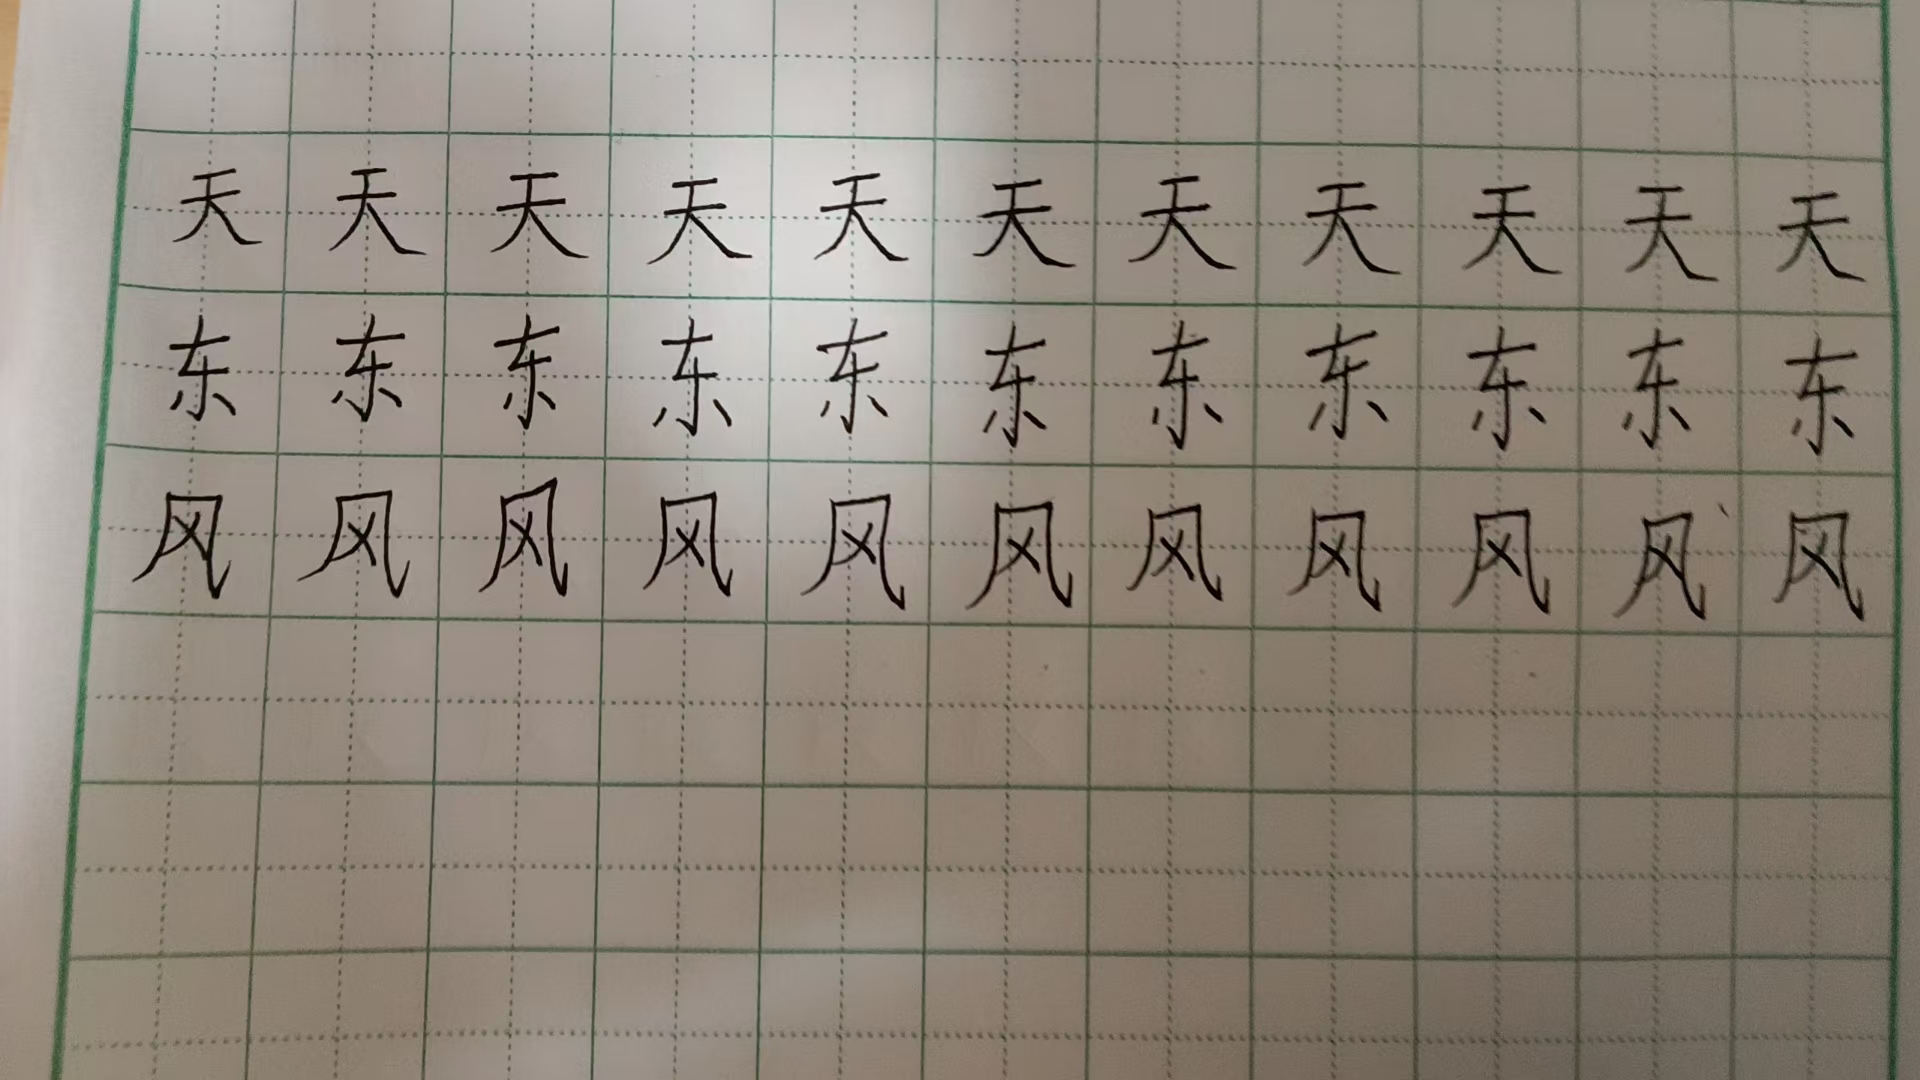 天天天天天天天天天天天
东东东东东东东东东东东
风风风风风风风风风风风